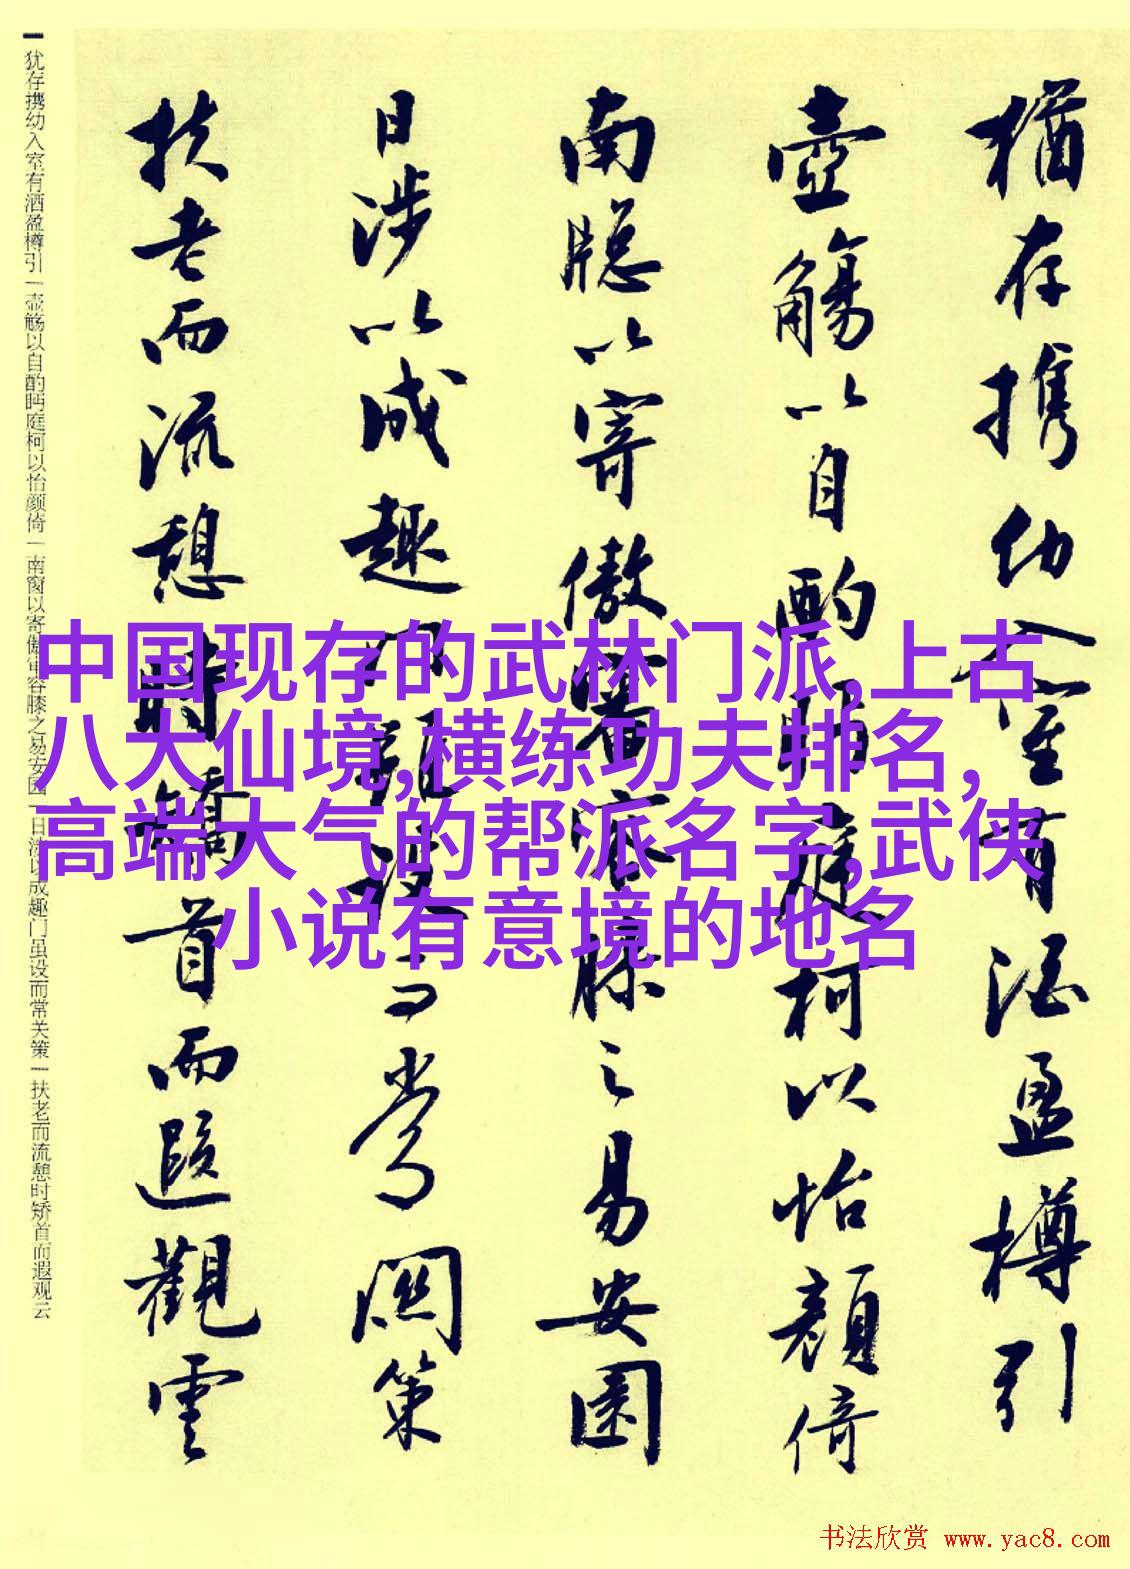 猶存携幼入室有酒盈樽引
壺觴以自酌眄庭柯以怡顏倚
南牕以寄傲審容膝之易安園
日涉以成趣門雖設而常關策
扶老而流憩時矯首而遐觀雲
犹存携幼入室有酒盈樽引一壶觞以自酌眄庭柯以怡颜倚一南窗以寄傲审容膝之易安园一日涉以成趣门虽设而常关策一扶老而流憩时矫首而遐观云
中国现存的武林门派,上古
八大仙境,横练功夫排名,
高端大气的帮派名字,武侠
小说有意境的地名
书法欣赏 www.yac8.com